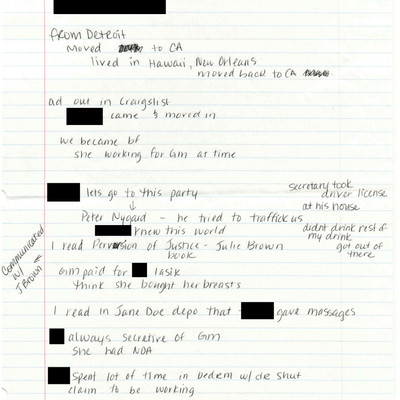 from Detroit
moved to CA
lived in Hawaii, New Orleans
moved back to CA
ad out in Craigslist
came & moved in
we became bf
she working for Gm at time
lets go to this party
secretary took
driver license
at his house
Peter Nygard - he tried to traffick us
knew this world
didnt drink rest of
my drink
got out of
there
I read Perversion of Justice - Julie Brown
book
Communicated
w/
J Brown
Gm paid for lasik
think she bought her breasts
I read in Jane Doe depo that gave massages
always secretive of Gm
She had NDA
Spent lot of time in w/ shut
claim to be working